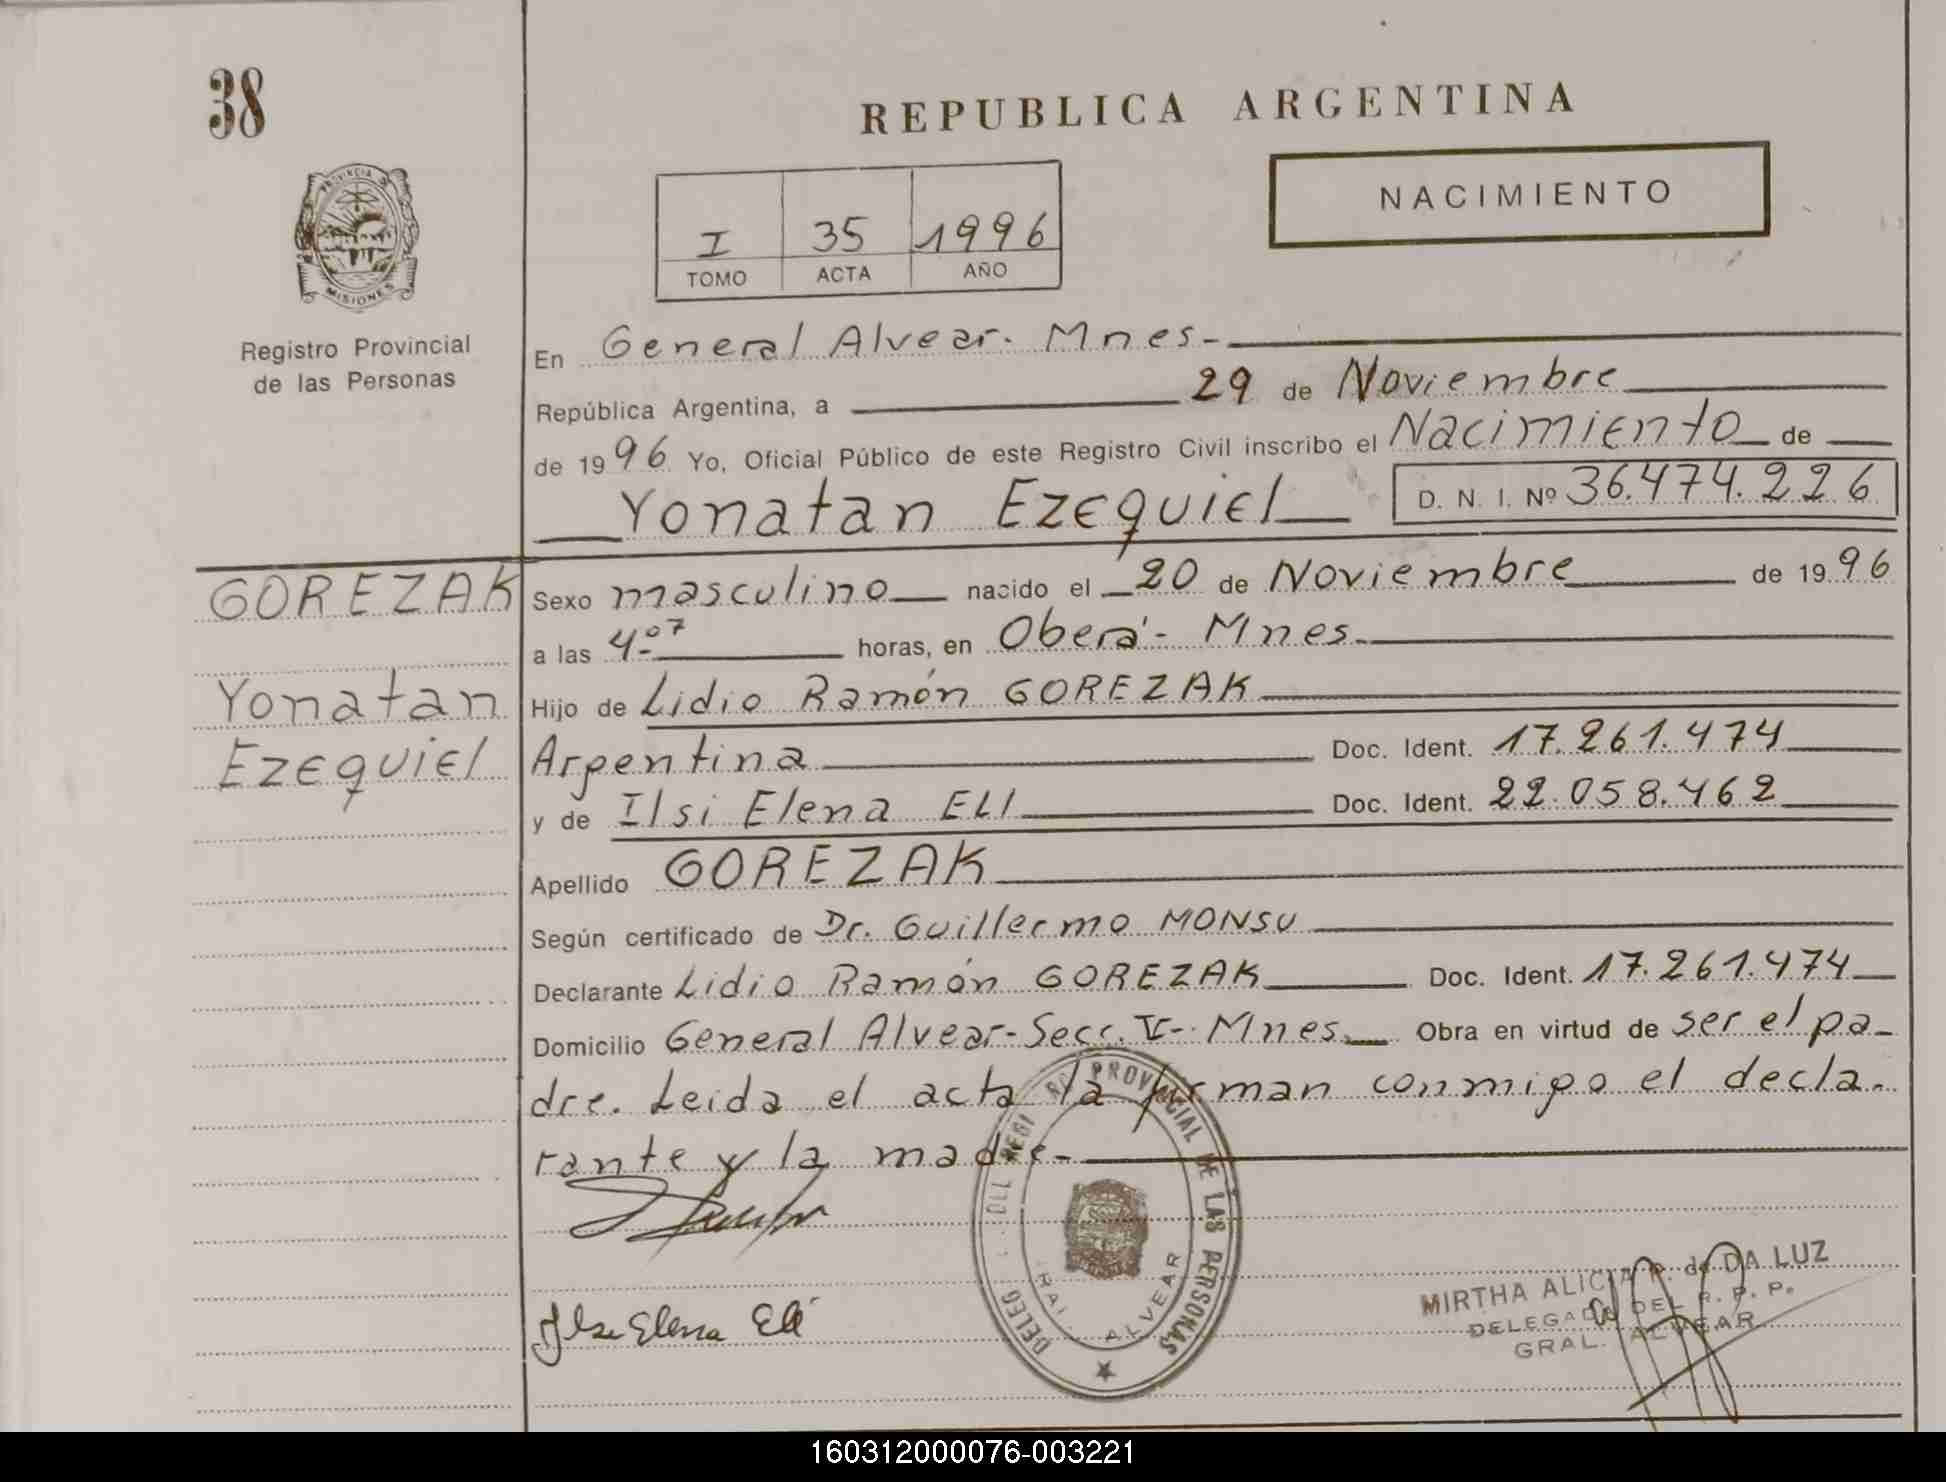 38
REPUBLICA ARGENTINA
PROVINCIA DE
MISIONES
Registro Provincial
de las Personas
NACIMIENTO
I 35 1996
TOMO ACTA AÑO
En General Alvear. Mnes.-
República Argentina, a 29 de Noviembre
de 1996 Yo, Oficial Público de este Registro Civil inscribo el Nacimiento de
Yonatan Ezequiel D. N. I. Nº 36.474.226
GOREZAK
Yonatan
Ezequiel
Sexo masculino nacido el 20 de Noviembre de 1996
a las 4.07 horas, en Oberá - Mnes.
Hijo de Lidio Ramón GOREZAK
Argentina Doc. Ident. 17.261.474
y de Ilsi Elena ELI Doc. Ident. 22.058.462
Apellido GOREZAK
Según certificado de Dr. Guillermo MONSU
Declarante Lidio Ramón GOREZAK Doc. Ident. 17.261.474
Domicilio General Alvear-Secc. Mnes. Obra en virtud de ser el pa-
dre. Leida el acta la firman conmigo el decla-
rante y la madre.-
DELEG. DEL REGI PROVINCIAL DE LAS PERSONAS
RAL ALVEAR
Elena Eli
MIRTHA ALICIA de DA LUZ
DELEGADA DEL R. P. P.
GRAL. ALVEAR
160312000076-003221